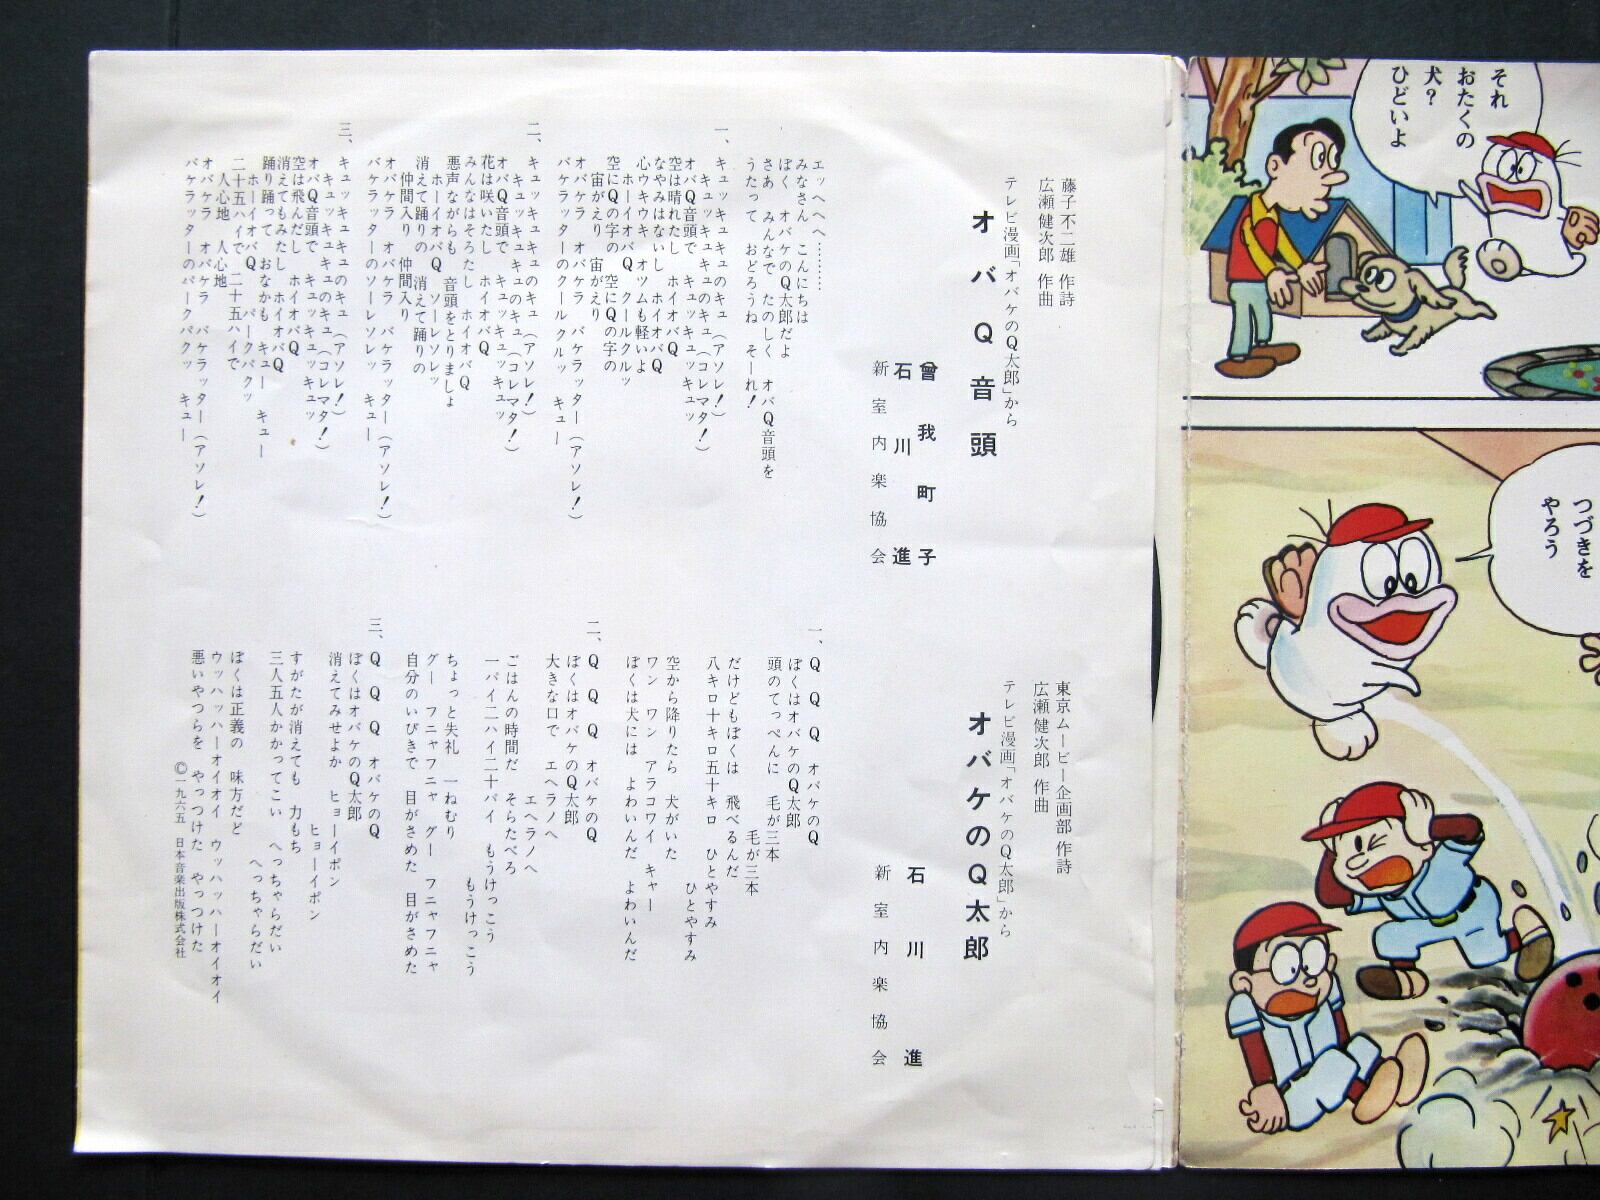 それ
おたくの
犬?
ひどいよ
つづきを
やろう
藤子不二雄 作詩
広瀬健次郎 作曲
テレビ漫画「オバケのQ太郎」から
オバQ音頭
曽我町子
石川進
新室内楽協会
エッヘヘヘ…………
みなさん こんにちは
ぼく オバケのQ太郎だよ
さあ みんなで たのしく オバQ音頭を
うたって おどろうね そーれ!
一、キュッキュキュのキュ(アソレ!)
キュッキュキュのキュ(コレマタ!)
オバQ音頭で キュッキュッキュッ
空は晴れたし ホイオバQ
なやみはないし ホイオバQ
心ウキウキ オツムも軽いよ
ホーイオバQ クールクルッ
空にQの字の 空にQの字の
宙がえり 宙がえり
オバケラ オバケラ バケラッター(アソレ!)
バケラッターのクールクルッ キュー
二、キュッキュキュのキュ(アソレ!)
キュッキュキュのキュ(コレマタ!)
オバQ音頭で キュッキュッキュッ
花は咲いたし ホイオバQ
みんなはそろたし ホイオバQ
悪声ながらも 音頭をとりましょ
ホーイオバQ ソーレソレッ
消えて踊りの 消えて踊りの
仲間入り 仲間入り
オバケラ オバケラ バケラッター(アソレ!)
バケラッターのソーレソレッ キュー
三、キュッキュキュのキュ(アソレ!)
キュッキュキュのキュ(コレマタ!)
オバQ音頭で キュッキュッキュッ
空は飛んだし ホイオバQ
消えてもみたし ホイオバQ
踊り踊って おなかも キュー キュー
ホーイオバQ パークパクッ
二十五ハイで 二十五ハイで
人心地 人心地
オバケラ オバケラ バケラッター(アソレ!)
バケラッターのパークパクッ キュー
東京ムービー企画部 作詩
広瀬健次郎 作曲
テレビ漫画「オバケのQ太郎」から
オバケのQ太郎
石川進
新室内楽協会
一、Q Q Q オバケのQ
ぼくはオバケのQ太郎
頭のてっぺんに 毛が三本
毛が三本
だけどもぼくは 飛べるんだ
八キロ十キロ五十キロ ひとやすみ
ひとやすみ
空から降りたら 犬がいた
ワン ワン アラコワイ キャー
ぼくは犬には よわいんだ よわいんだ
二、Q Q Q オバケのQ
ぼくはオバケのQ太郎
大きな口で エヘラノヘ
エヘラノヘ
ごはんの時間だ そらたべろ
一パイ二ハイ二十パイ もうけっこう
もうけっこう
ちょっと失礼 一ねむり
グー フニャフニャ グー フニャフニャ
自分のいびきで 目がさめた 目がさめた
三、Q Q Q オバケのQ
ぼくはオバケのQ太郎
消えてみせよか ヒョーイポン
ヒョーイポン
すがたが消えても 力もち
三人五人かかってこい へっちゃらだい
へっちゃらだい
ぼくは正義の 味方だど
ウッハッハーオイオイ ウッハッハーオイオイ
悪いやつらを やっつけた やっつけた
©一九六五 日本音楽出版株式会社